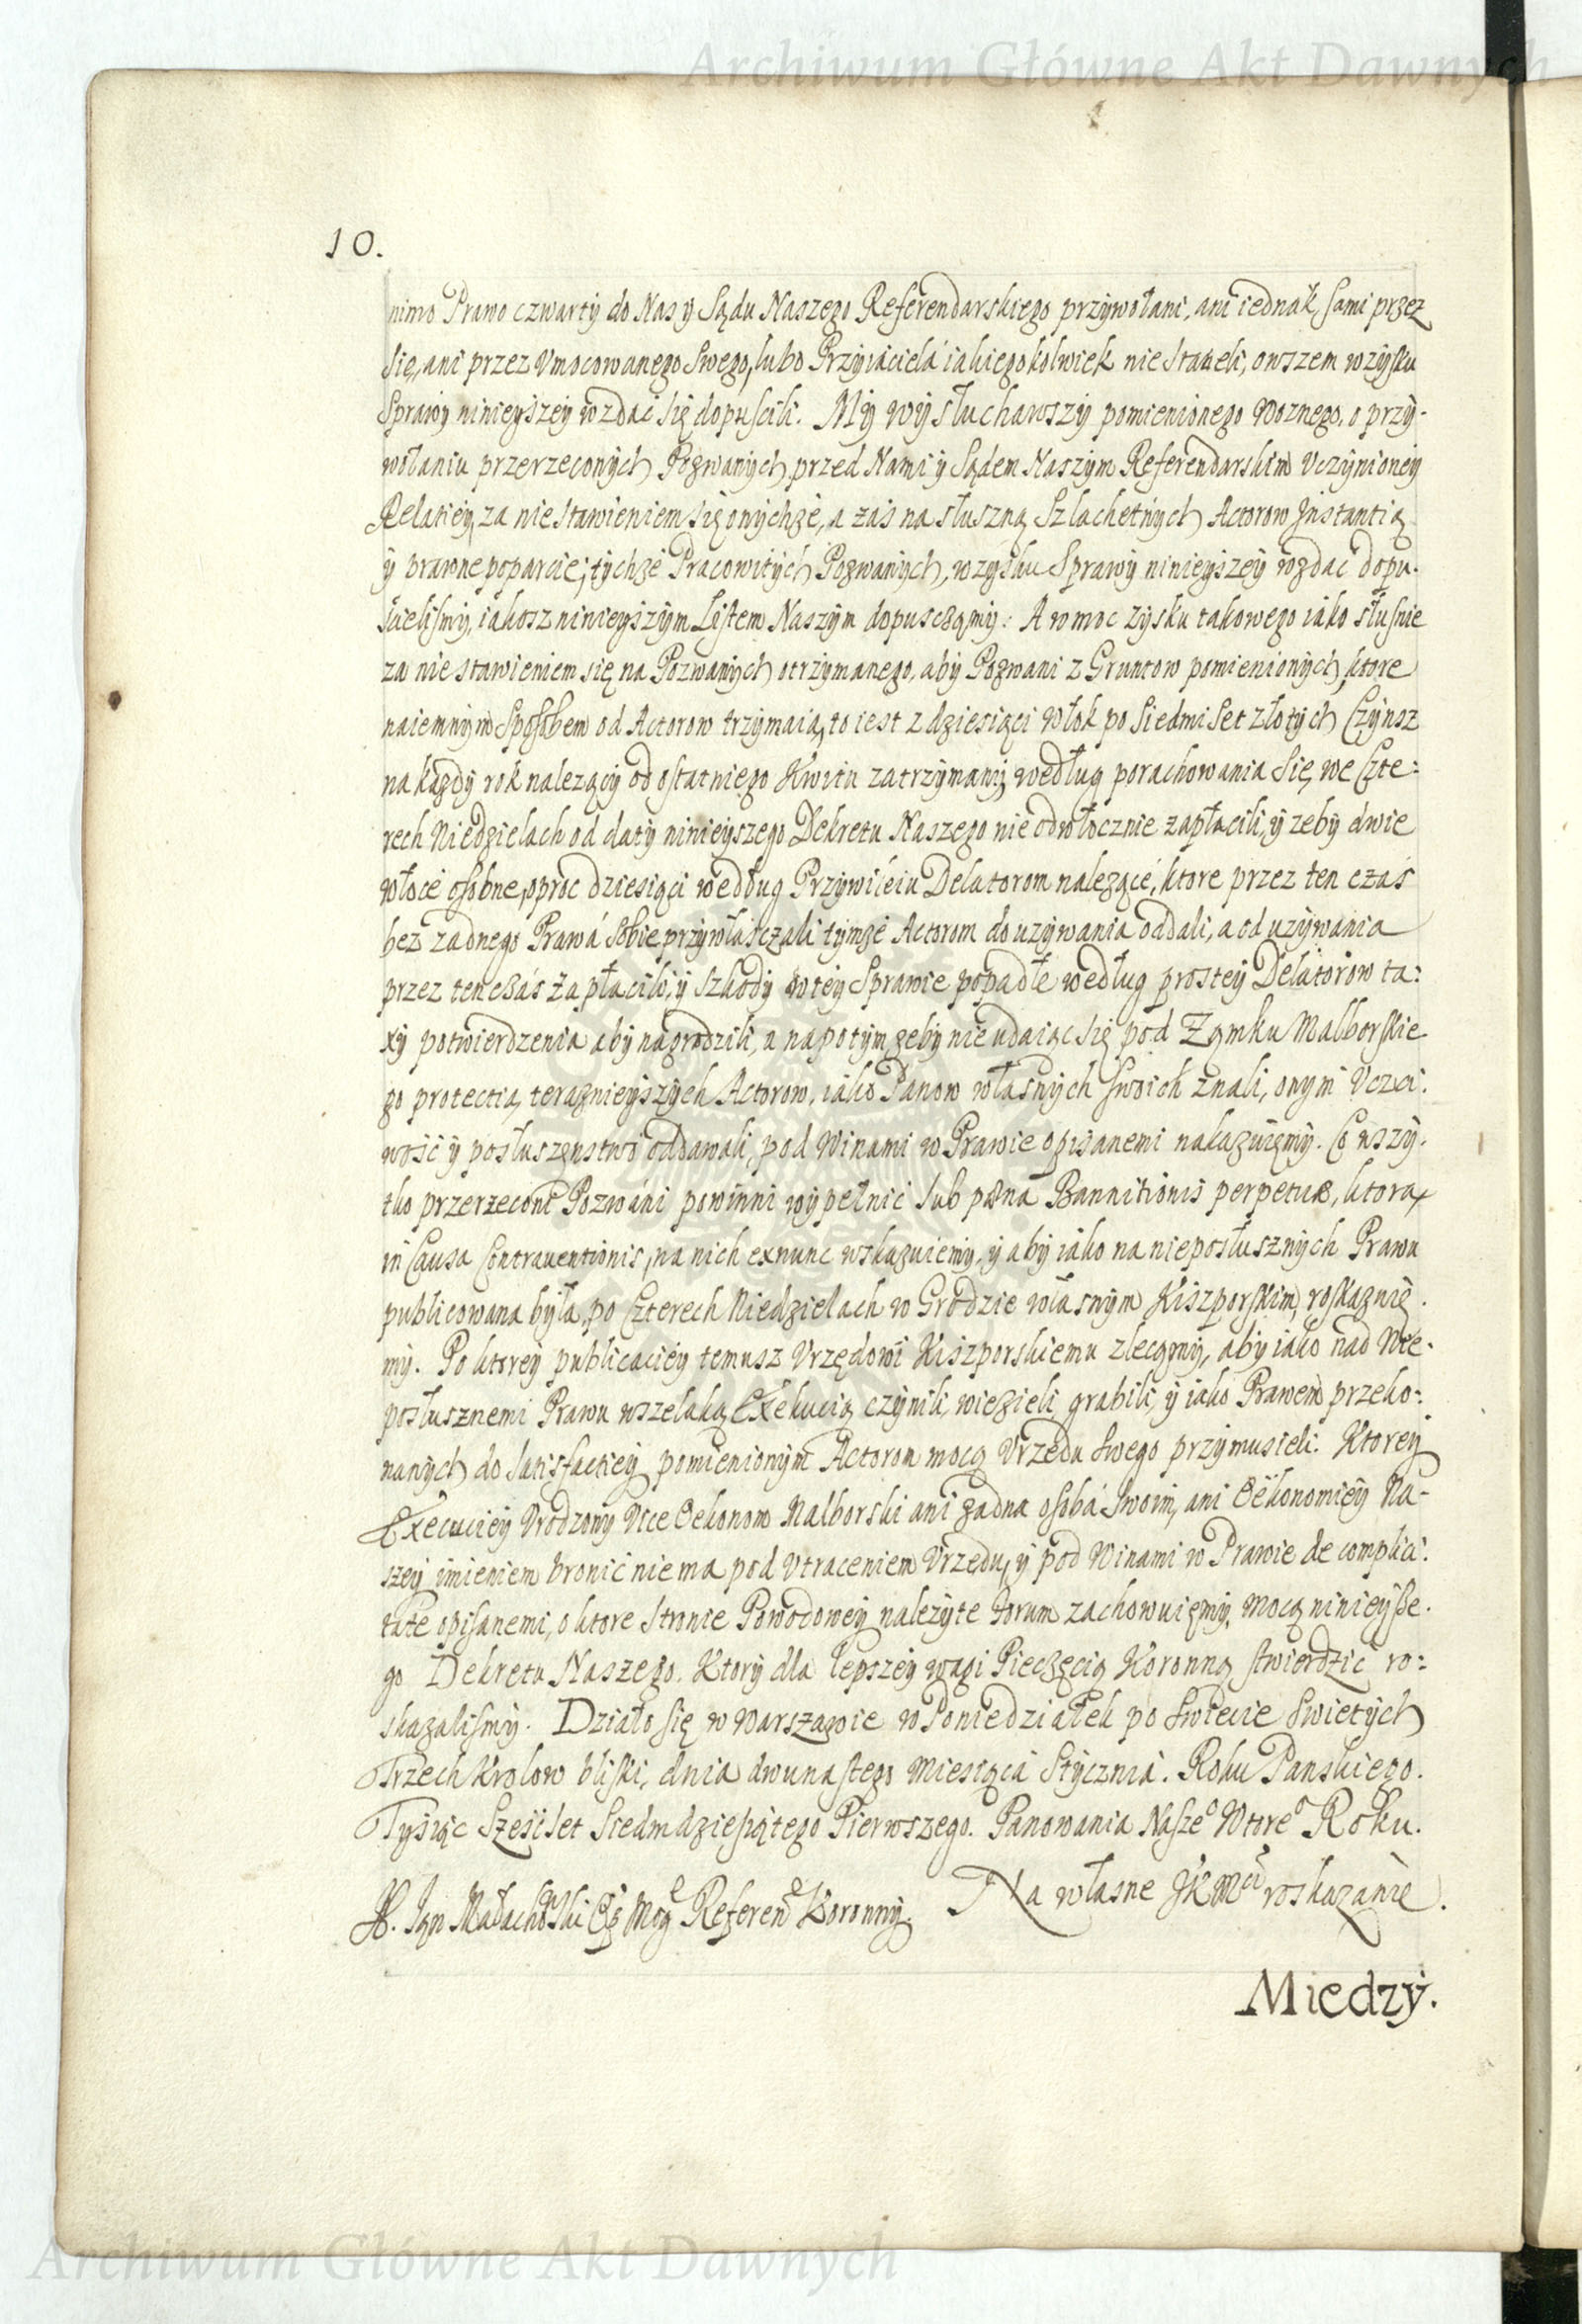 Archiwum Główne Akt Dawnych
10.
nimo Prawo czwarty do Nas y Sądu Naszego Referendarskiego przywołani, ani iednak sami przez
się, ani przez Vmocowanego Swego, lubo Przyiaciela iakiegokolwiek nie staneli, owszem w zysku
Sprawy ninieyszey wzdać się dopuscili. My wysłuchawszy pomienionego Woznego, o przy-
wołaniu przerzeconych Pozwanych przed Nami y Sądem Naszym Referendarskim Vczynioney
Relatiey, za nie stawieniem się onychże, a zaś na słuszną Szlachetnych Actorow Jnstantią
y prawne poparcie, tychże Pracowitych Pozwanych, w zysku Sprawy ninieyszey wzdać dopu-
scielismy, iakosz ninieyszym Listem Naszym dopusczamy: A w moc zysku takowego iako słusnie
za nie stawieniem się na Pozwanych otrzymanego, aby Pozwani z Gruntow pomienionych, ktore
naiemnym Sposobem od Actorow trzymaią, to iest z dziesiąci włok po Siedmi Set złotych Czynsz
na kazdy rok nalezący od ostatniego Kwitu zatrzymany, według porachowania Się, we Czte:
rech Niedzielach od daty ninieyszego Dekretu Naszego nie odwłocznie zapłacili, y zeby dwie
włoce osobne, oproc dziesiąci według Przywileiu Delatorom nalezące, ktore przez ten czas
bez zadnego Prawa Sobie przywłasczali tymże Actorom do uzywania oddali, a od uzywania
przez ten czas zapłacili, y szkody w tey Sprawie popadłe według prostey Delatorow ta:
xy potwierdzenia aby nagrodzili, a napotym zeby nie udaiąc się pod Zamku Malborskie
go protectią, teraznieyszych Actorow, iako Panow własnych swoich znali, onym Vczci:
wość y posłuszenstwo oddawali, pod Winami w Prawie opisanemi nakazuiemy. Co wszy-
tko przerzeconi Pozwani powinni wypełnić sub pœna Bannitionis perpetuæ, ktorą
in Causa Contrauentionis, na nich exnunc wskazuiemy, y aby iako na nieposłusznych Prawu
publicowana była, po Czterech Niedzielach w Grodzie własnym Kiszporskim, roskazuie-
my. Po ktorey publicaciey temusz Vrzędowi Kiszporskiemu zlecamy, aby iako nad Nie-
posłusznemi Prawu wszelaką Exekucią czynili, wiezieli, grabili, y iako Prawem przeko:
nanych do satisfactiey pomienionym Actorom mocą Vrzedu swego przymusieli. Ktorey
Execuciey Vrodzony Vice Oekonom Malborski ani zadna osoba Swoim, ani Oekonomiey Na-
szey imieniem bronić nie ma pod Vtraceniem Vrzedu, y pod Winami w Prawie de complici:
tate opisanemi, o ktore Stronie Powodowey nalezyte Forum zachowuiemy, mocą ninieysze-
go Dekretu Naszego. Ktory dla lepszey wagi Pieczęcią Koronną stwierdzić ro:
skazalismy. Działo się w Warszawie w Poniedziałek po Swiecie Swietych
Trzech Krolow bliski, dnia dwunastego Miesiąca Stycznia. Roku Panskiego.
Tysiąc Szescset Siedmdziesiątego Pierwszego. Panowania Nasze° Wtore° Roku.
Jan Małachowski Referen Koronny. Na własne JKMci roskazanie.
Miedzy.
Archiwum Główne Akt Dawnych